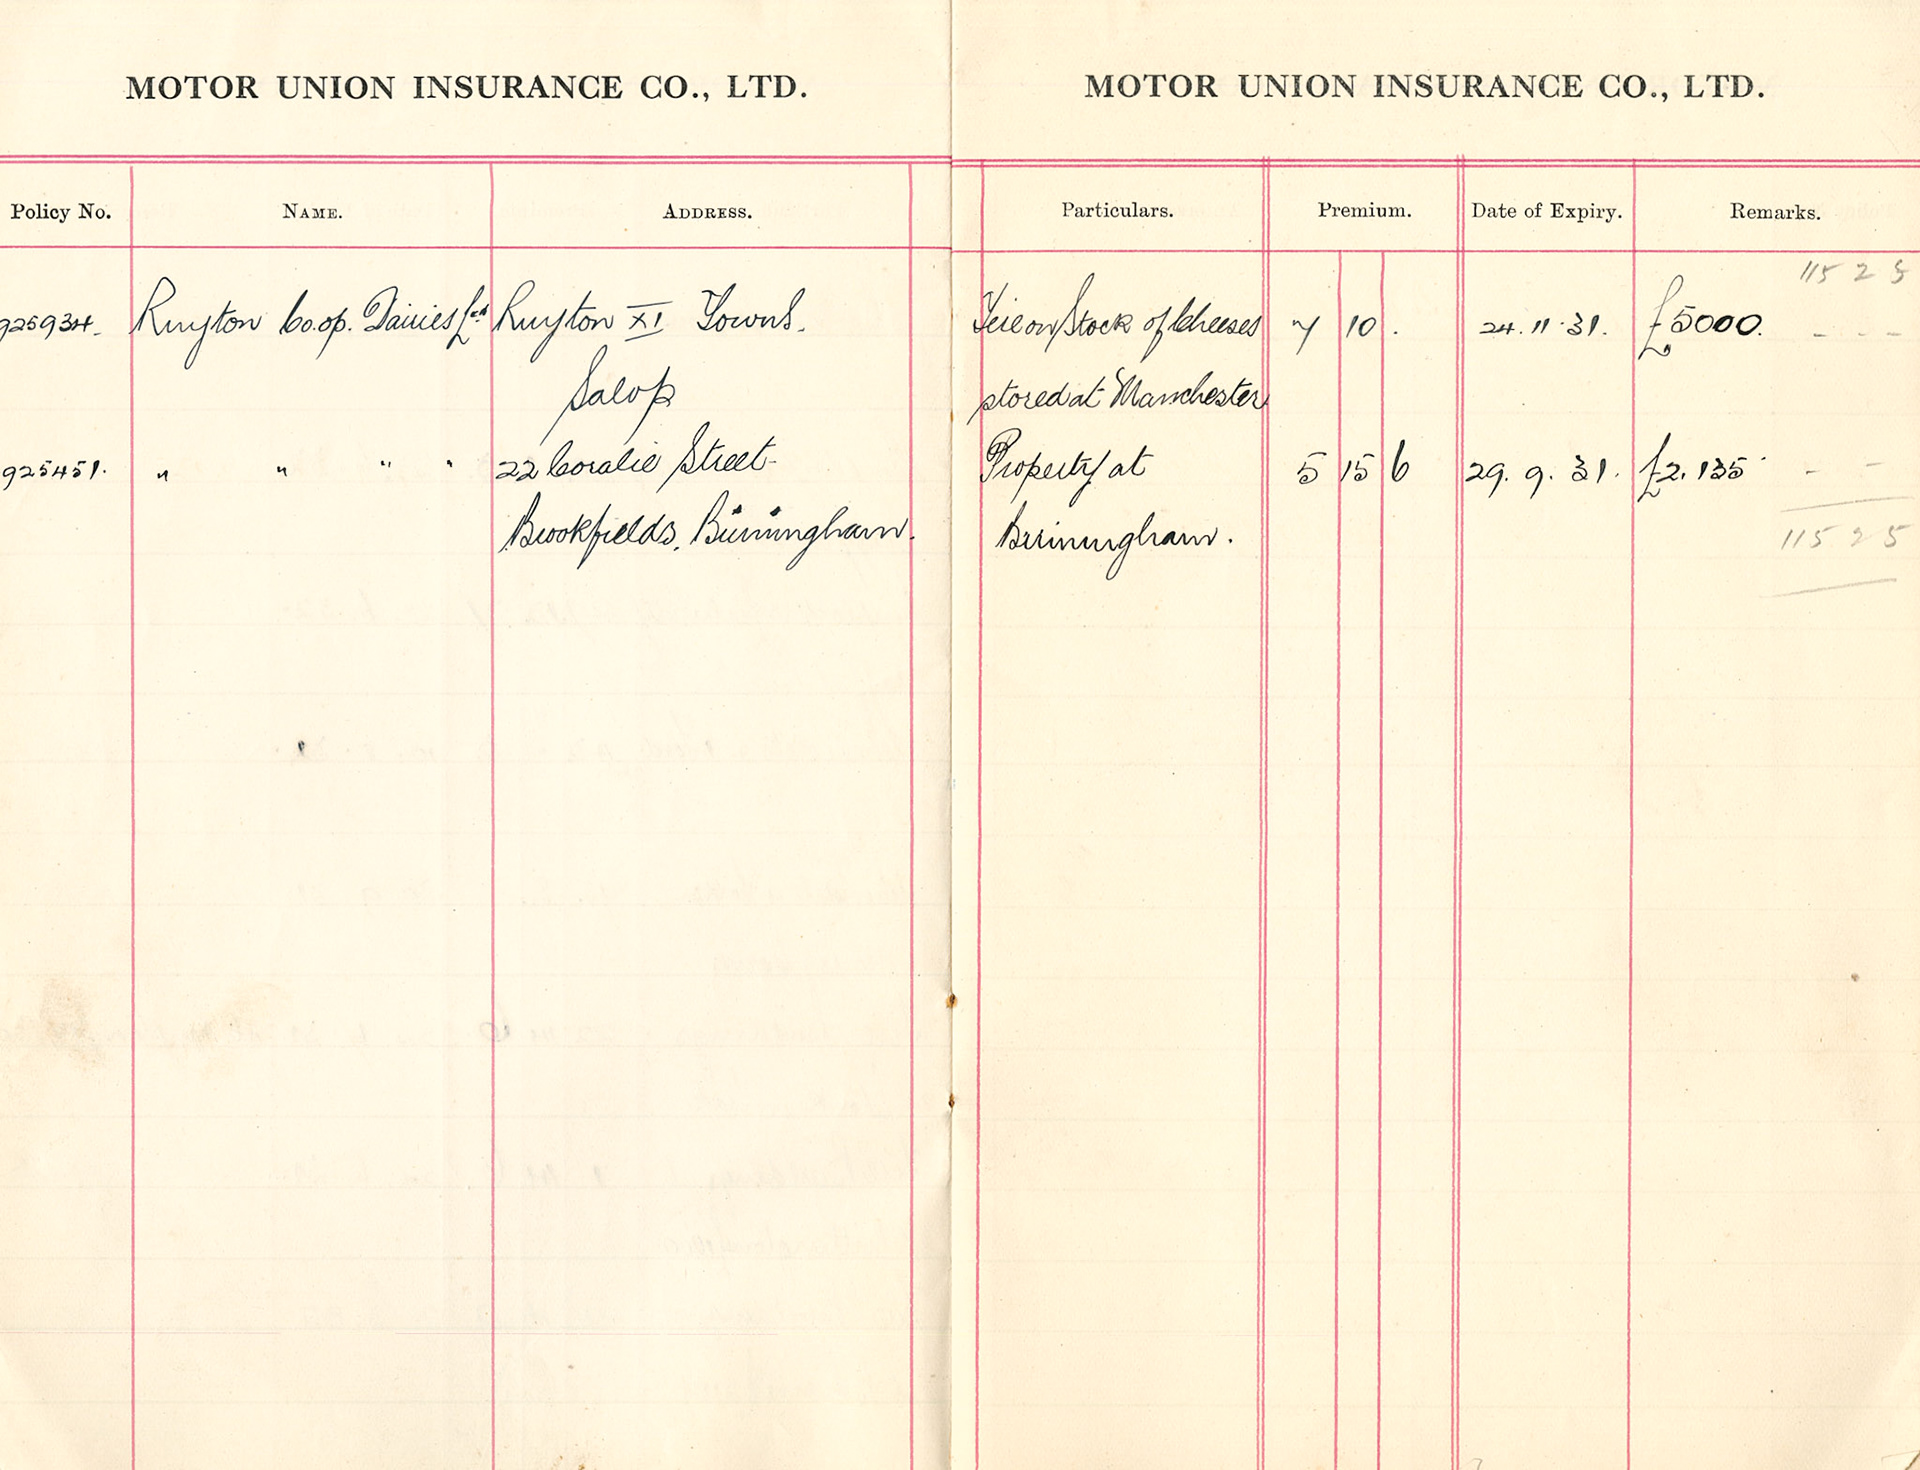 MOTOR UNION INSURANCE CO., LTD. MOTOR UNION INSURANCE CO., LTD.
Policy No. NAME. ADDRESS. Particulars. Premium. Date of Expiry. Remarks.
115 2 5
925934. Ruyton Co.op. Dairies Ltd Ruyton XI Towns. Fire on Stock of Cheeses 7 10 . 24.11.31. £5000. - - -
Salop stored at Manchester
925451. " " " " 22 Coralie Street Property at 5 15 6 29. 9. 31. £2.135 - -
Brookfields, Birmingham. Birmingham. 115 2 5